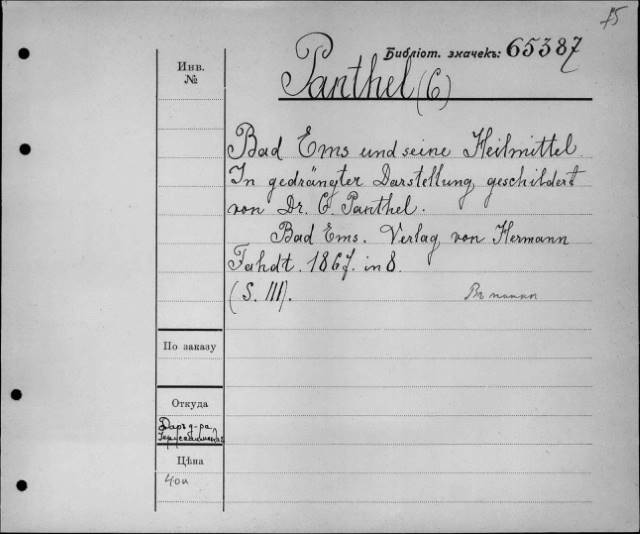 15
Библіот. значекъ: 65387
Инв.
№
Panthel (C)
Bad Ems und seine Heilmittel.
In gedrängter Darstellung geschildert
von Dr. C. Panthel.
Bad Ems. Verlag von Hermann
Fahdt. 1867. in 8.
(S. 111).
Въ папкп
По заказу
Откуда
Даръ д-ра
Цѣна
40к